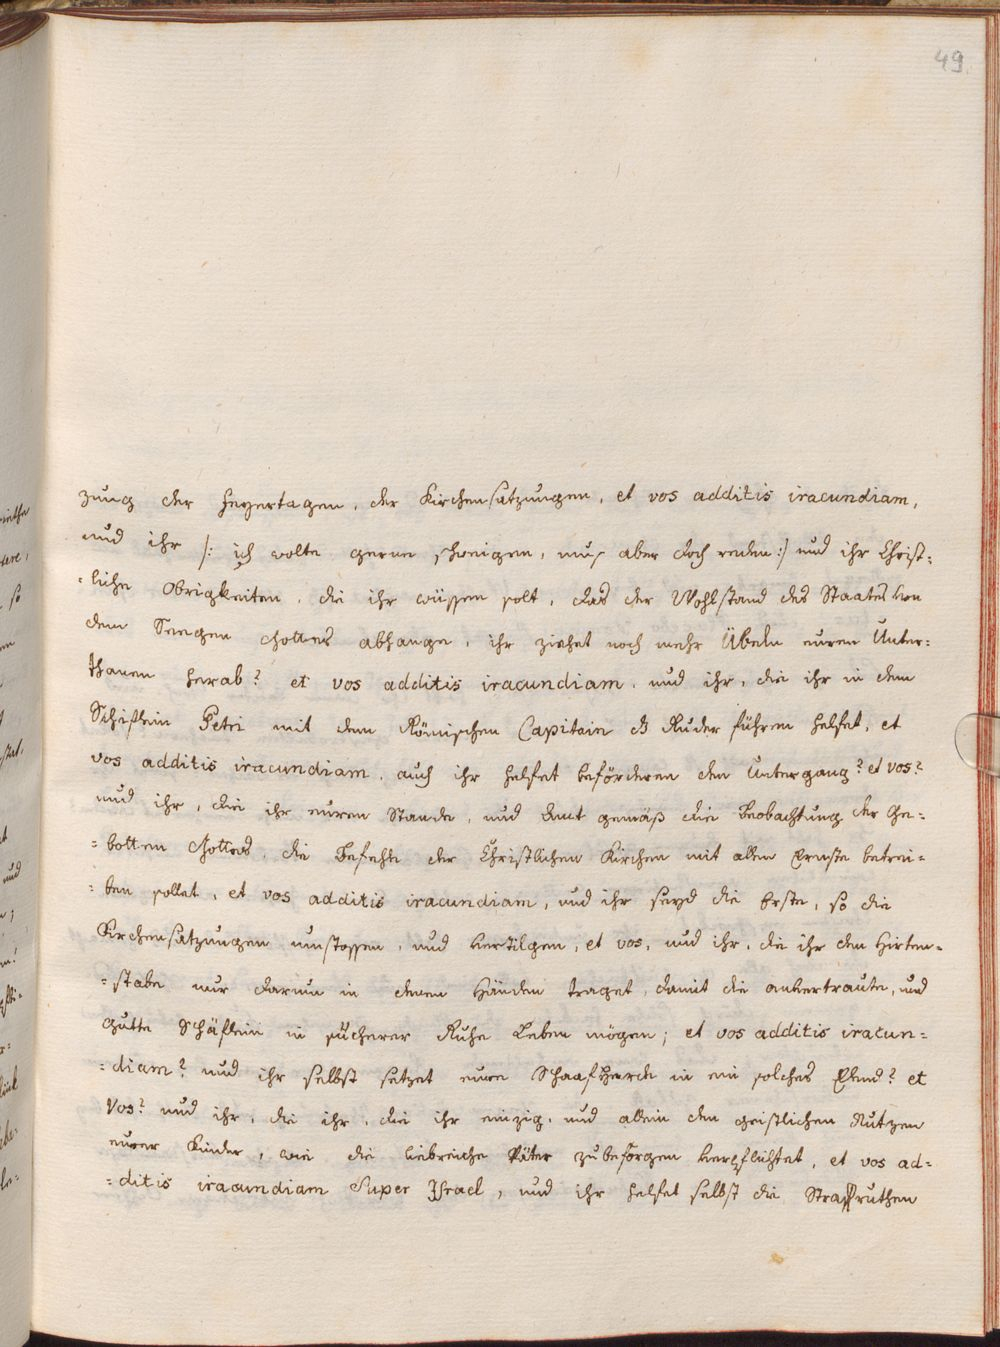 49.
zung der Feyertagen, der Kirchensatzungen, et vos additis iracundiam,
und ihr /: ich wolte gerne schweigen, mus aber doch reden :/ und ihr Christ=
=liche Obrigkeiten, die ihr wüssen solt, das der Wohlstand des Staates von
dem Seegen Gottes abhange, ihr ziehet noch mehr Übeln euren Unter=
thanen herab? et vos additis iracundiam, und ihr, die ihr in dem
Schiflein Petri mit dem Römischen Capitain dß Ruder führen helfet, et
vos additis iracundiam, auch ihr helfet beförderen den Untergang? et vos?
und ihr, die ihr eurem Stande, und Amt gemäß die Beobachtung der Ge=
=botten Gottes, die Befehle der Christlichen Kirchen mit allem Ernste betrei=
=ben sollet, et vos additis iracundiam, und ihr seyd die Erste, so die
Kirchensatzungen umstossen, und vertilgen, et vos, und ihr, die ihr den Hirten=
=stabe nur darum in denen Händen traget, damit die anvertraute, und
gutte Schäflein in sücherer Ruhe Leben mögen; et vos additis iracun=
=diam? und ihr selbst setzet eure Schaafheerde in ein solches Elend? et
vos? und ihr, die ihr, die ihr einzig, und allein den geistlichen Nutzen
eurer Kinder, wie die liebreiche Väter zubesorgen verpflichtet, et vos ad=
=ditis iracundiam super Israel, und ihr helfet selbst die Straffruthen